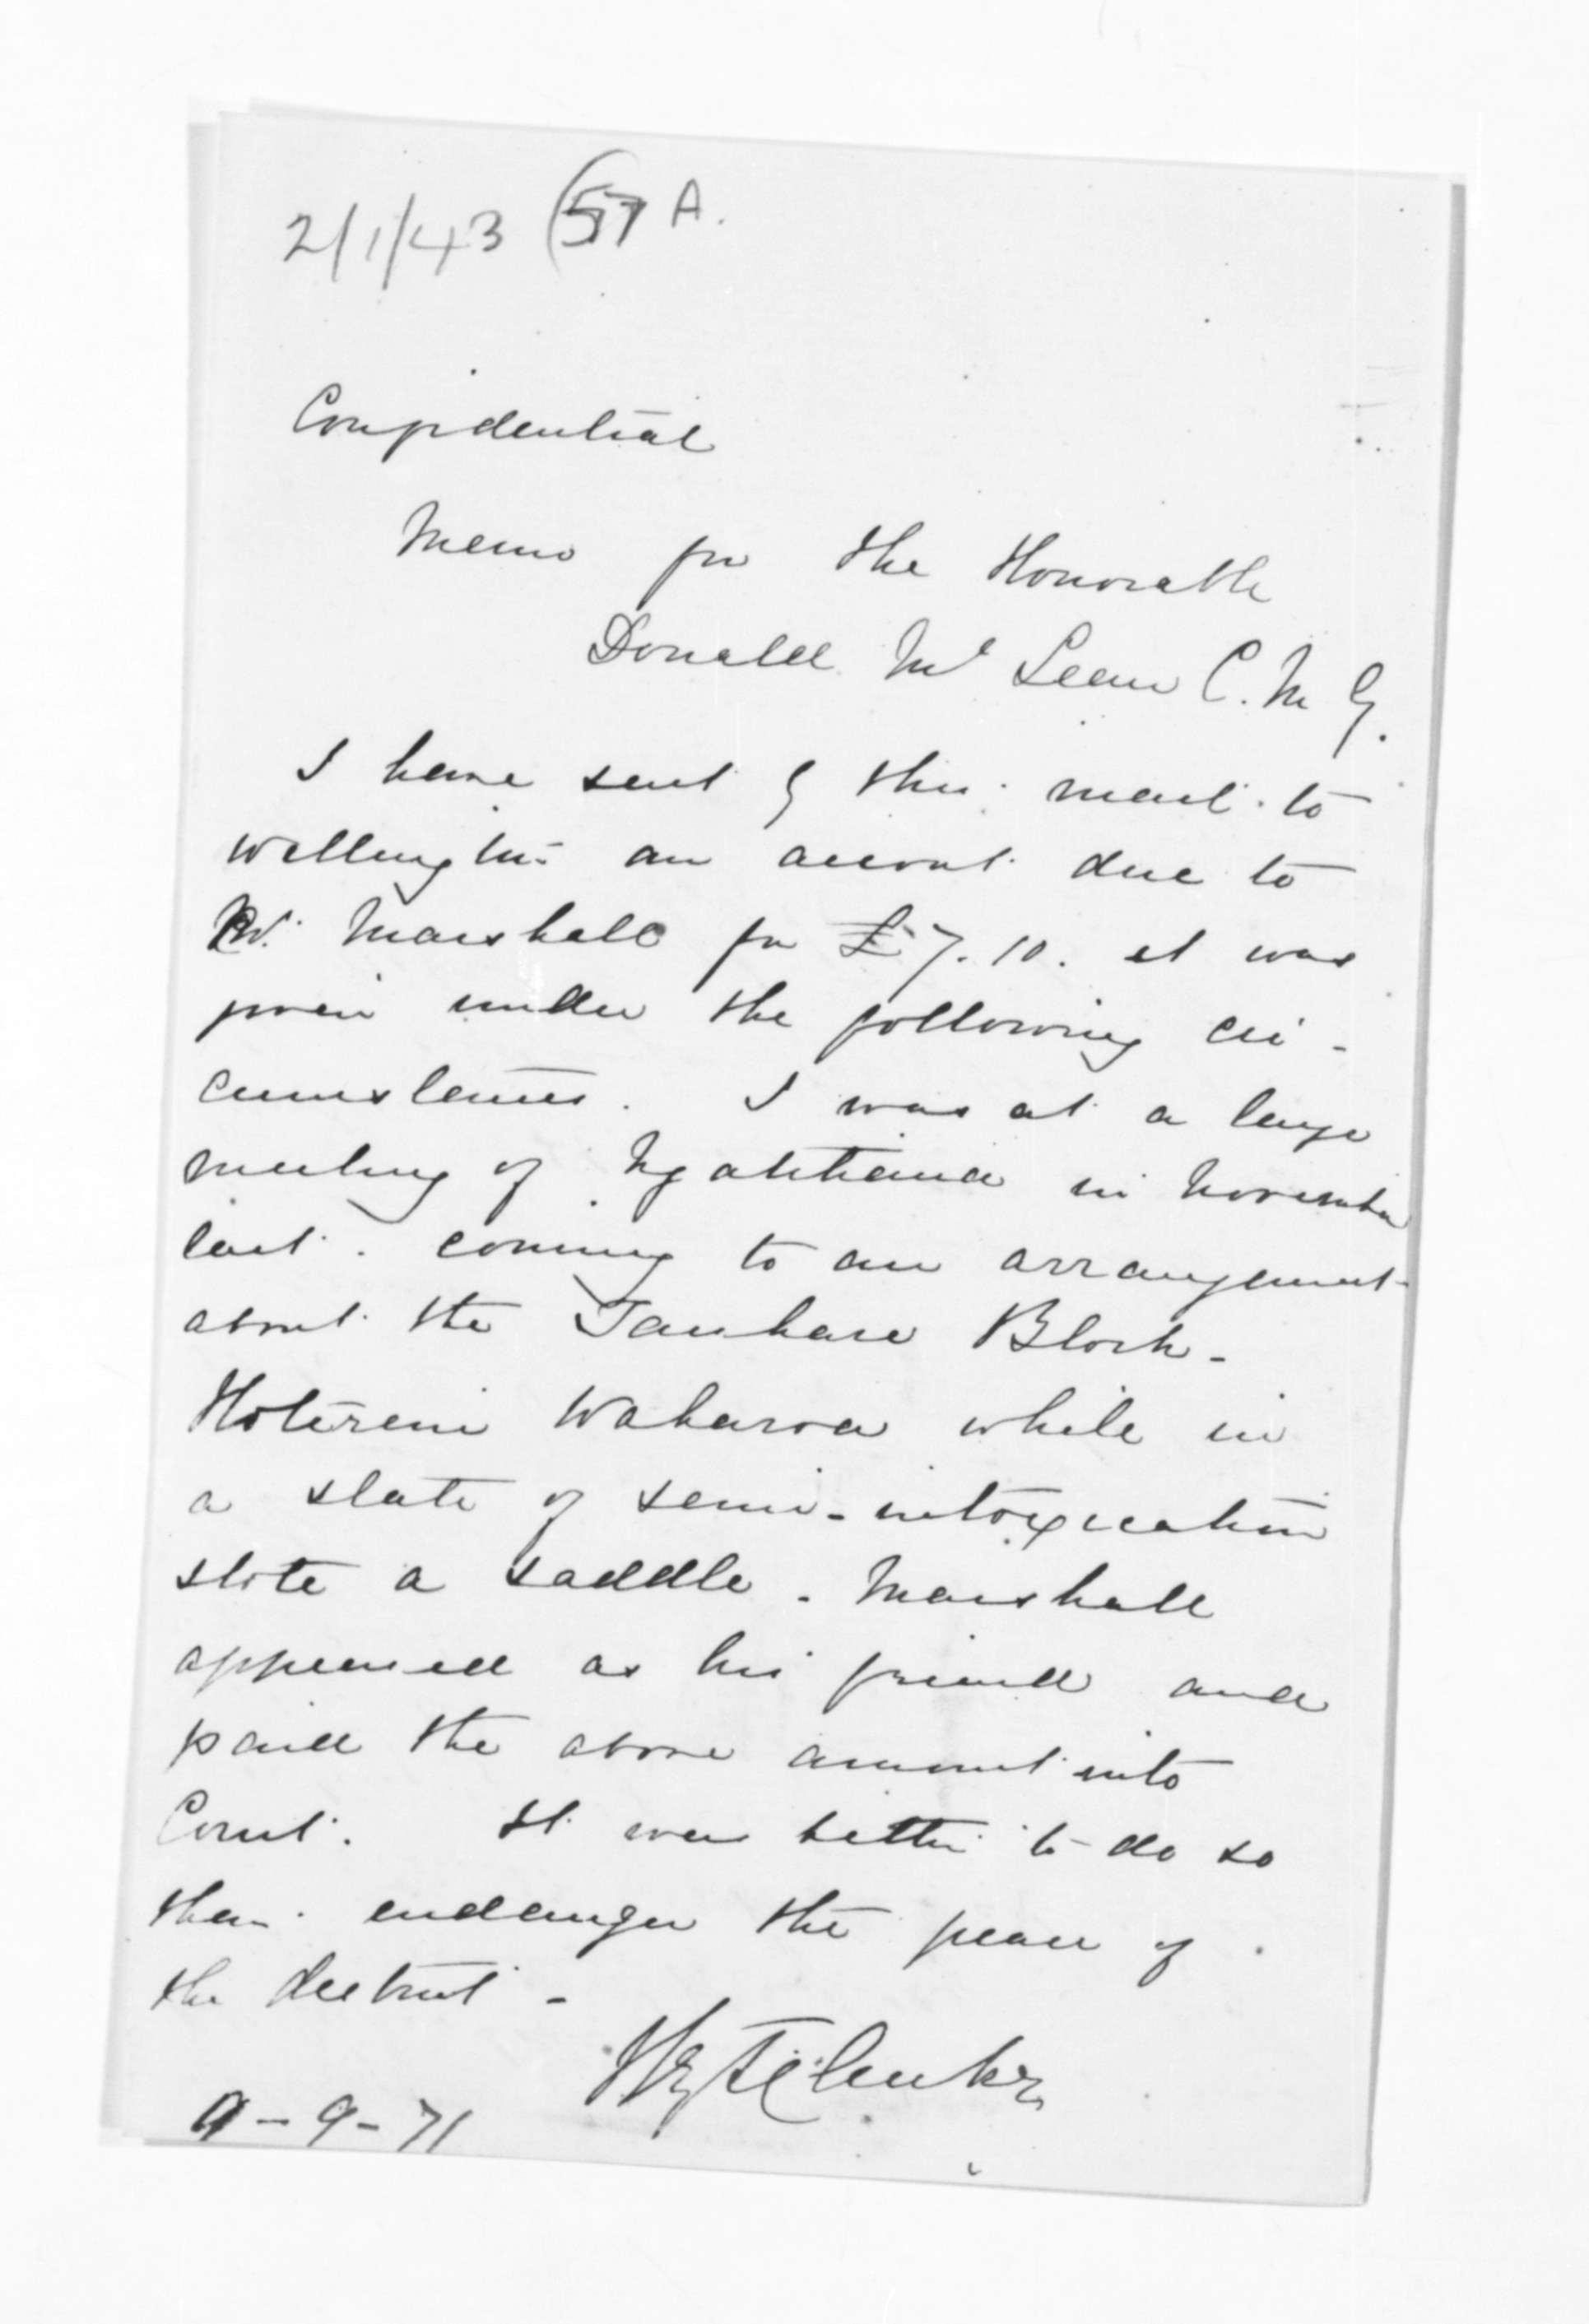 2/1/43 (57 A.
Confidential
Memo for the Honorable
Donald McLean C.M.G.
I have sent by this mail to
Wellington an account due to
W. Marshall for £7.10. it was
given under the following cir-
cumstances. I was at a large
meeting of Ngatitiaua in November
last. coming to an arrangement
about the Tauhara Block -
Hoterene Waharoa while in
a state of semi-intoxication
stole a saddle. Marshall
appeared as his friend and
paid the above amount into
Court. It was better to do so
than endanger the peace of
the district -
9-9-71